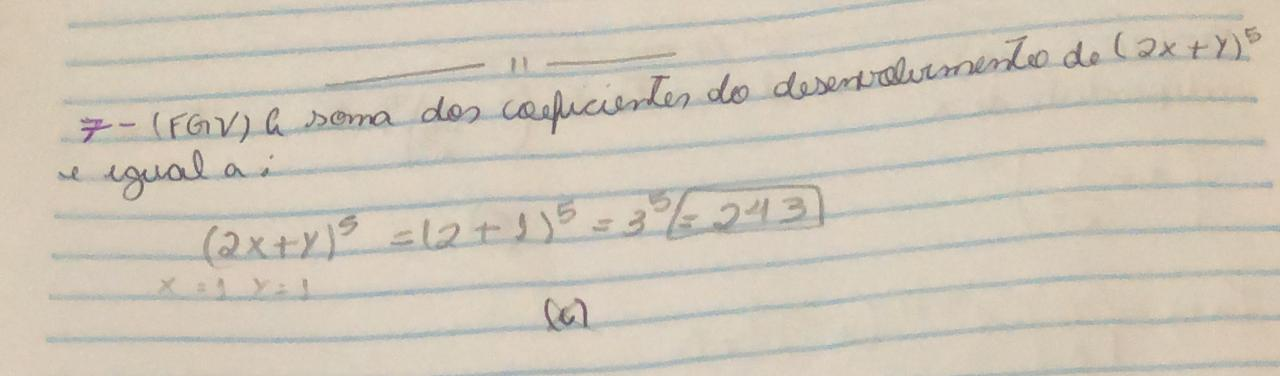 11
7-(FGV) A soma dos coeficientes do desenvolvimento de (2x+y)⁵
e igual a:
(2x+y)⁵ = (2+1)⁵ = 3⁵ = 243
x=1 y=1
(c)